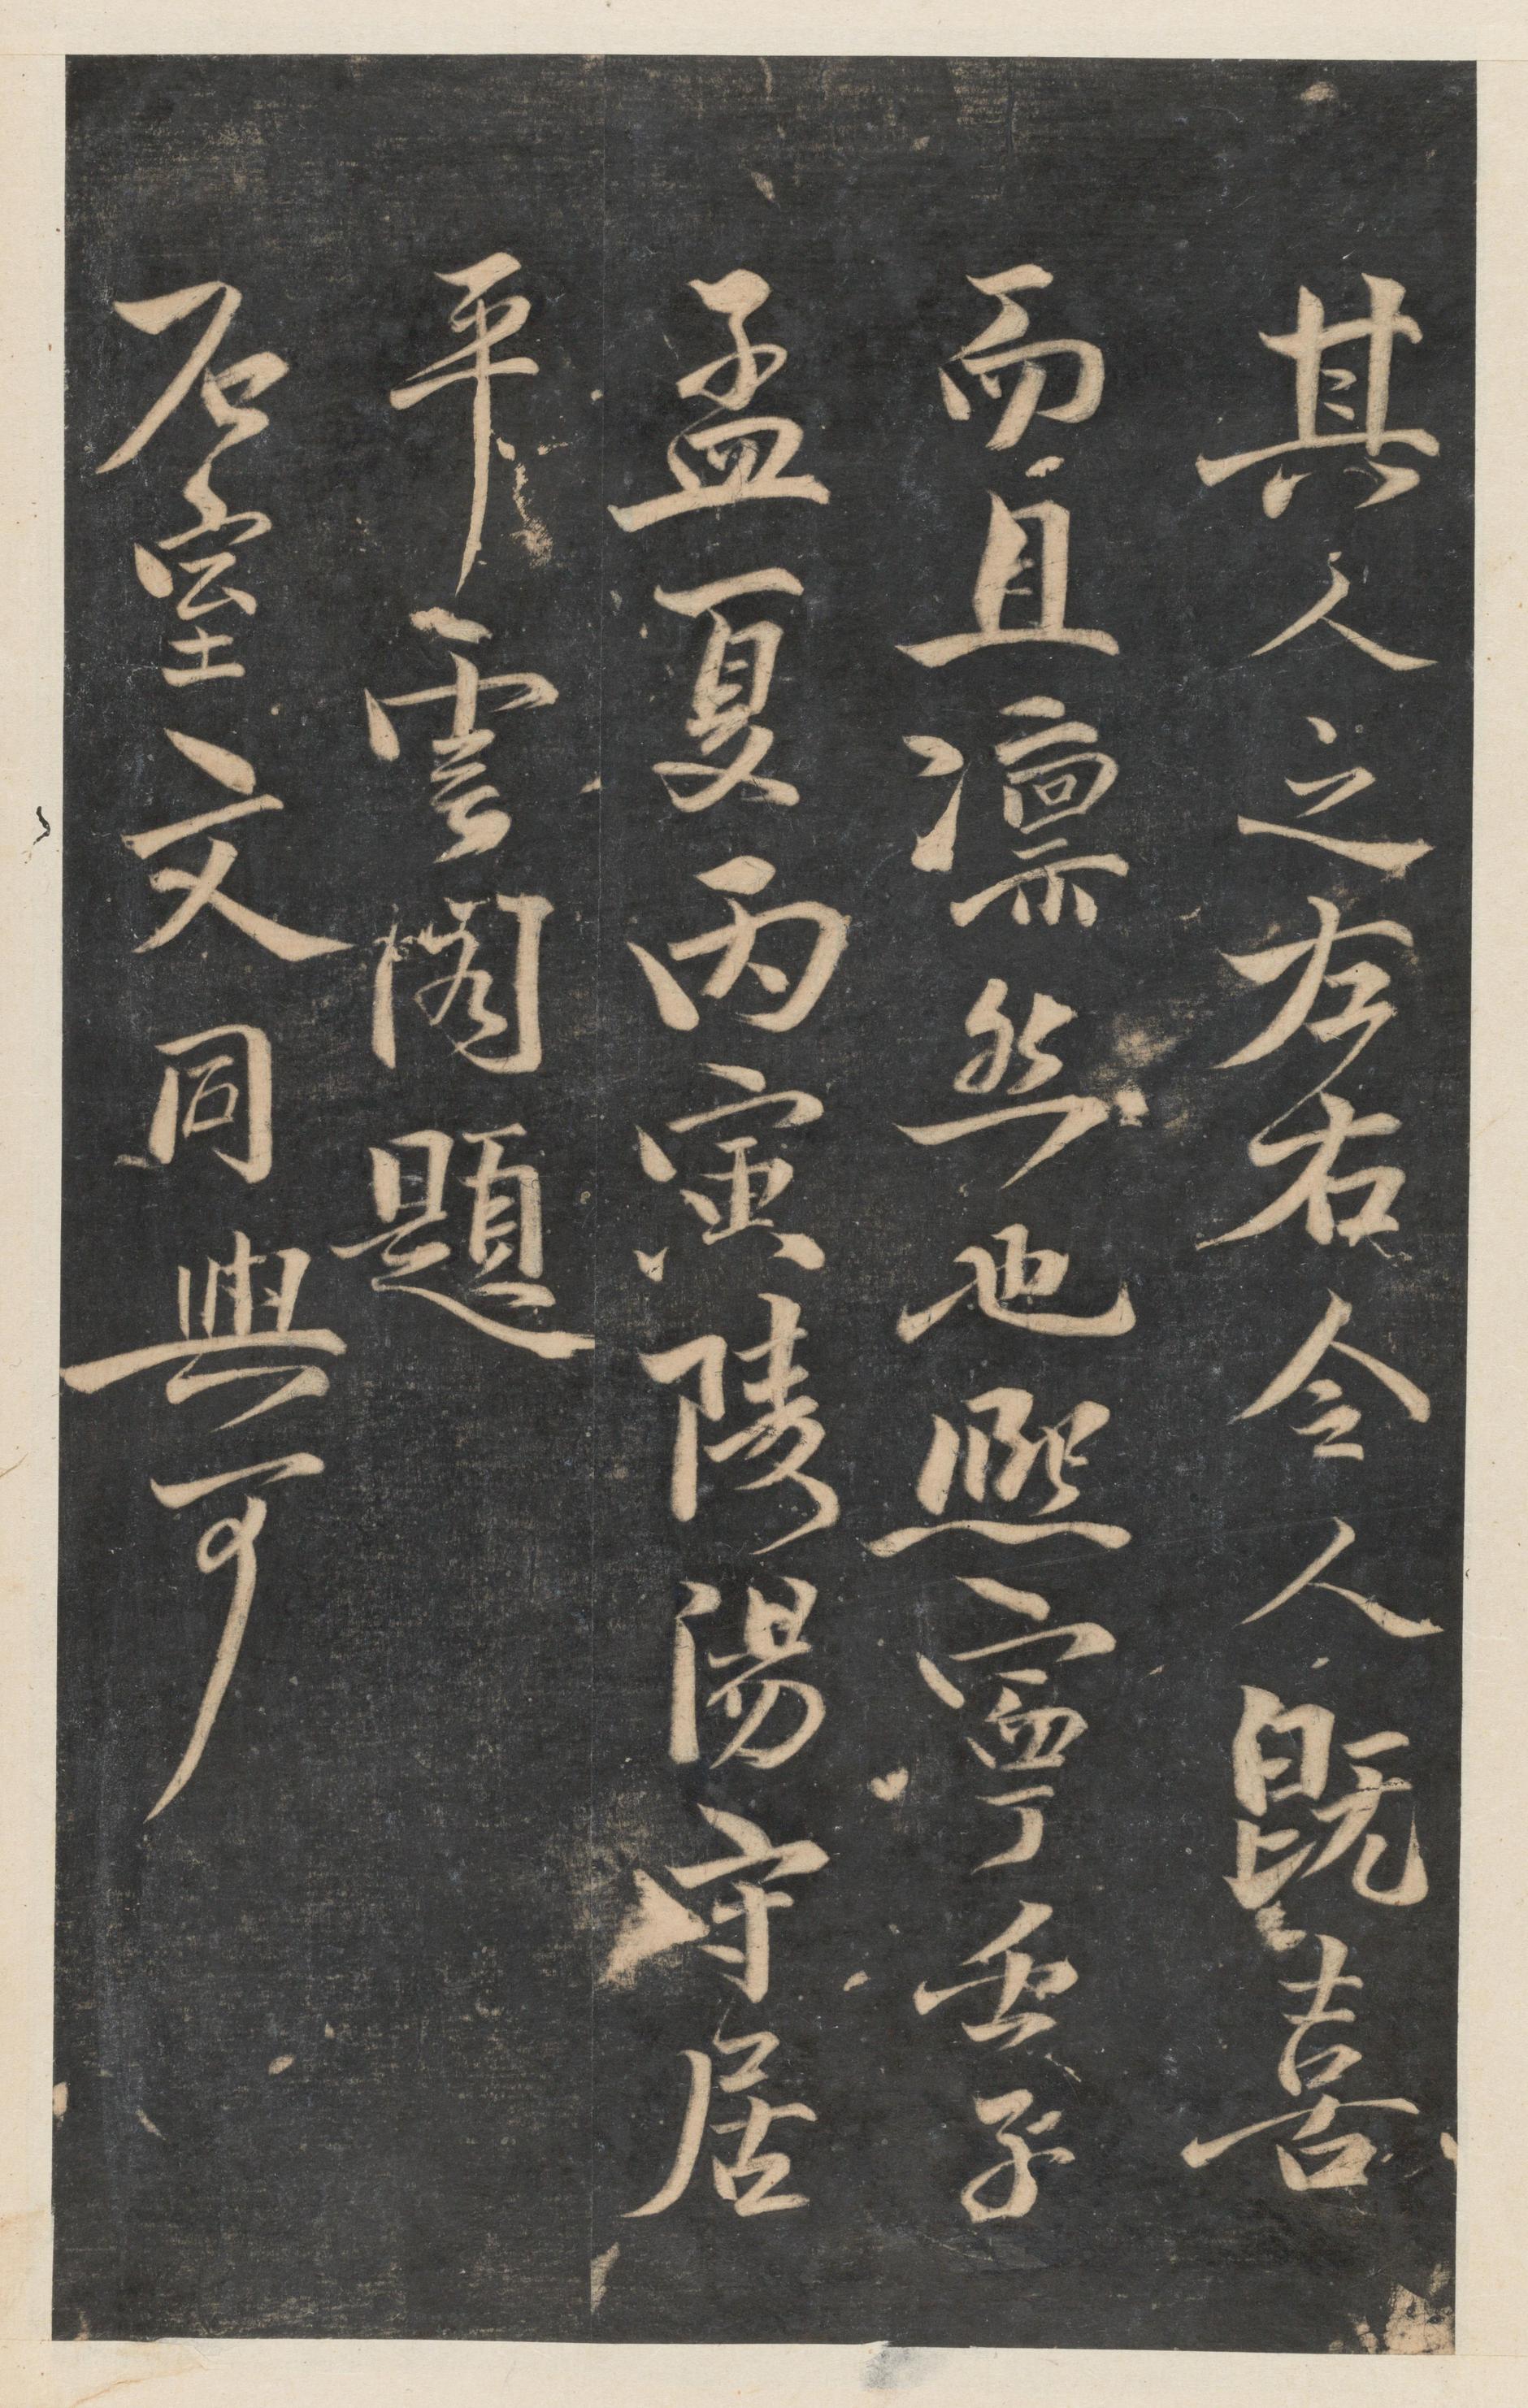 其人之左右令人既喜
而且凛然也熈寧壬子
孟夏丙寅陵陽守居
平雲閣題
石室文同與可